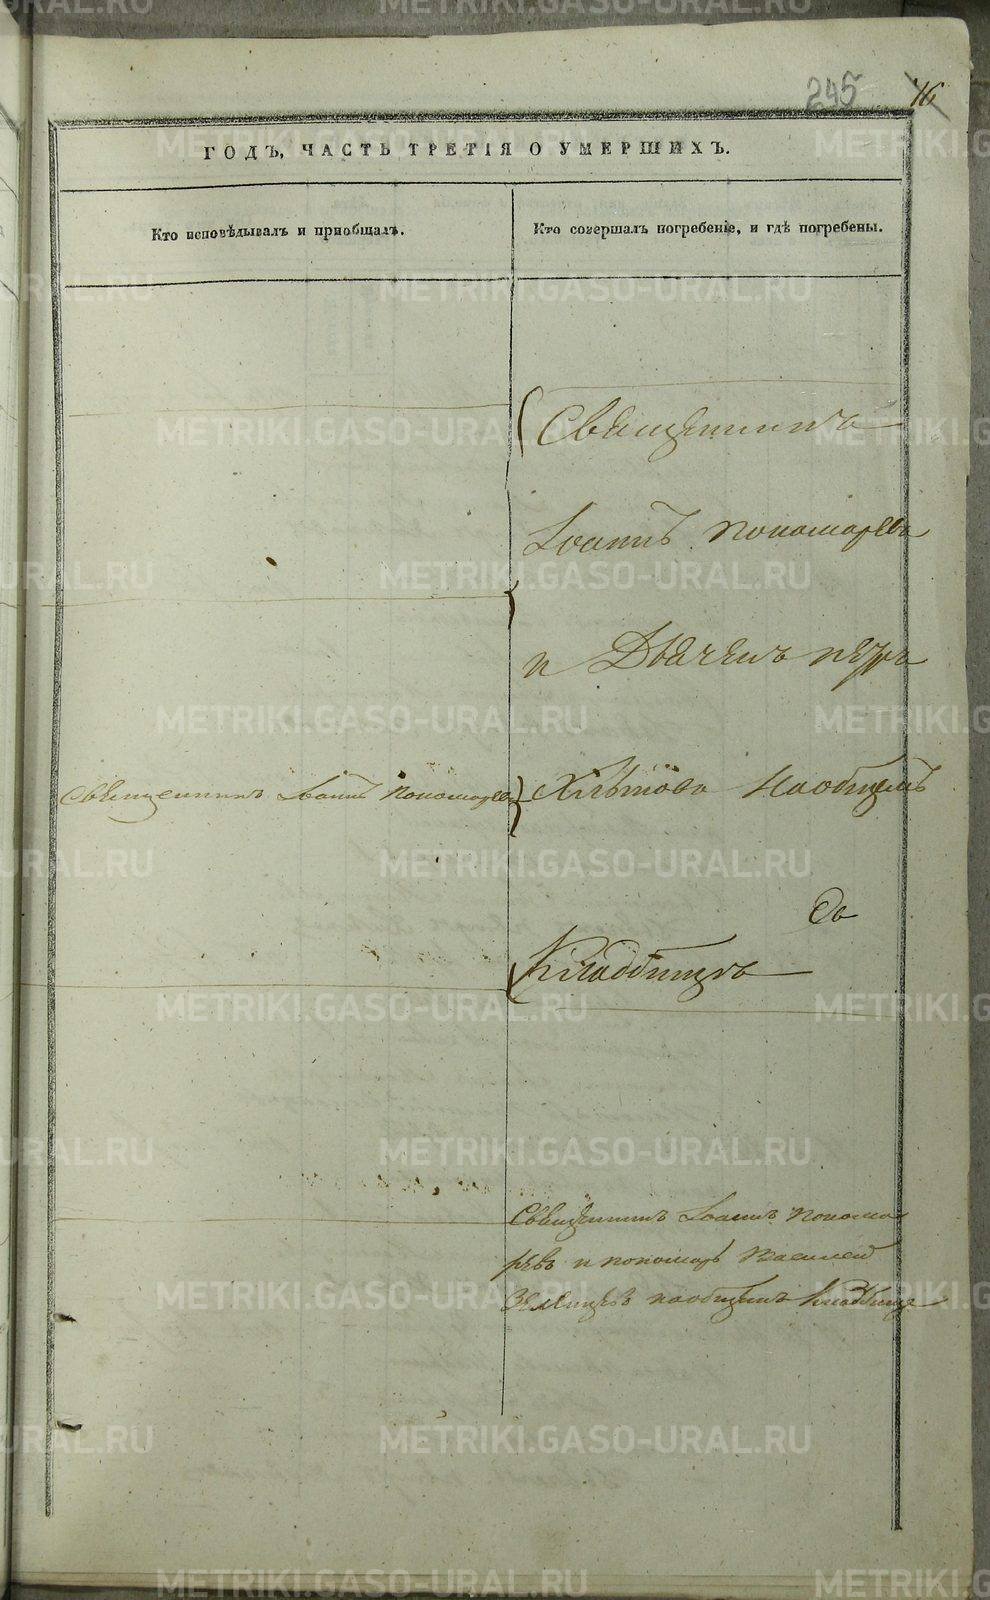 245 16
ГОДЪ, ЧАСТЬ ТРЕТІЯ О УМЕРШИХЪ.
Кто исповѣдывалъ и пріобщалъ.
Кто совершалъ погребеніе, и гдѣ погребены.
Священникъ
Іоаннъ Пономаревъ
и Дьячекъ Петръ
Священникъ Іоаннъ Пономаревъ
Хлѣтовъ На общемъ
Кладбищѣ
Священникъ Іоаннъ Понома
ревъ и пономарь Василей
на общемъ кладбище
METRIKI.GASO-URAL.RU